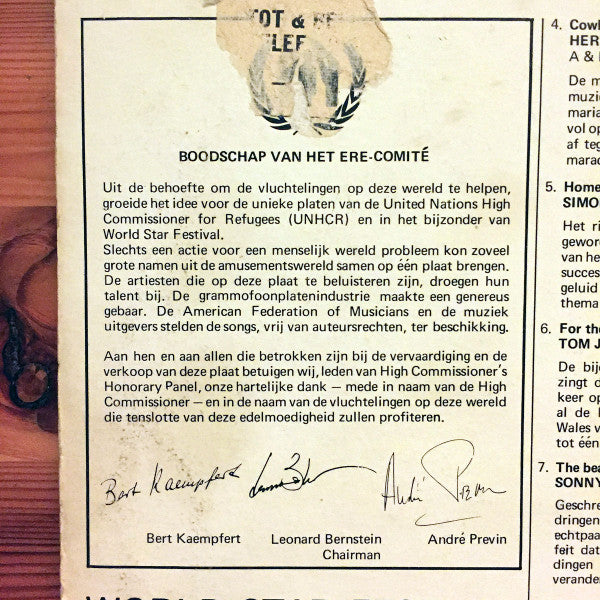 TOT &
BOODSCHAP VAN HET ERE-COMITÉ
Uit de behoefte om de vluchtelingen op deze wereld te helpen,
groeide het idee voor de unieke platen van de United Nations High
Commissioner for Refugees (UNHCR) en in het bijzonder van
World Star Festival.
Slechts een actie voor een menselijk wereld probleem kon zoveel
grote namen uit de amusementswereld samen op één plaat brengen.
De artiesten die op deze plaat te beluisteren zijn, droegen hun
talent bij. De grammofoonplatenindustrie maakte een genereus
gebaar. De American Federation of Musicians en de muziek
uitgevers stelden de songs, vrij van auteursrechten, ter beschikking.
Aan hen en aan allen die betrokken zijn bij de vervaardiging en de
verkoop van deze plaat betuigen wij, leden van High Commissioner's
Honorary Panel, onze hartelijke dank — mede in naam van de High
Commissioner — en in de naam van de vluchtelingen op deze wereld
die tenslotte van deze edelmoedigheid zullen profiteren.
Bert Kaempfert
André Previn
Bert Kaempfert Leonard Bernstein André Previn
Chairman
4. Cow
HER
A &
De m
muzi
maria
vol op
af teg
marac
5. Home
SIMO
Het ri
gewor
van he
succes
geluid
thema
6. For the
TOM J
De bij
zingt d
keer op
al de
Wales v
tot één
7. The bea
SONNY
Geschre
dringen
echtpaa
feit dat
dingen
verande